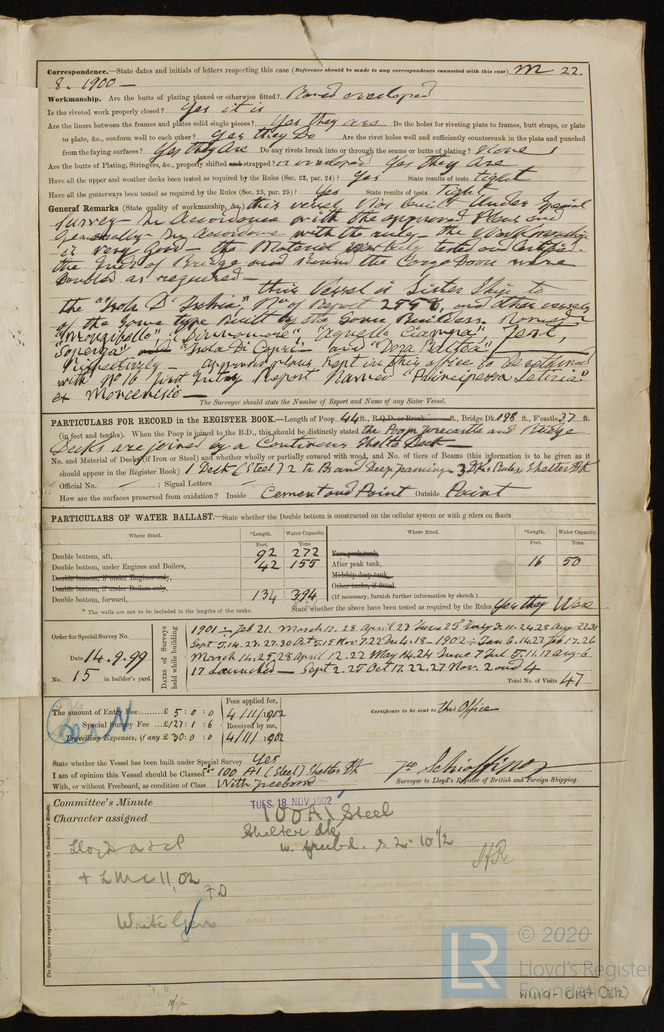 Correspondence.—State dates and initials of letters respecting this case (Reference should be made to any correspondence connected with this case) M 22.
8. 1900 —
Workmanship. Are the butts of plating planed or otherwise fitted? Planed overlaped
Is the riveted work properly closed? Yes it is
Are the liners between the frames and plates solid single pieces? Yes they are Do the holes for riveting plate to frames, butt straps, or plate
to plate, &c., conform well to each other? Yes they Do Are the rivet holes well and sufficiently countersunk in the plate and punched
from the faying surfaces? Yes they Are Do any rivets break into or through the seams or butts of plating?
Are the butts of Plating, Stringers, &c., properly shifted and strapped? or overlaped Yes they Are
Have all the upper and weather decks been tested as required by the Rules (Sec. 22, par. 24)? Yes State results of tests tight
Have all the gutterways been tested as required by the Rules (Sec. 23, par. 25)? Yes State results of tests tight
General Remarks (State quality of workmanship, &c.) this vessel Was built Under Special
Survey - In Accordance with the approved Plans and
Generally In Accordance with the rules - the Workmanship
is very good - the Material tested and Certified.
the Ends of Bridge and Round the Cargo Doors were
Doubled as required —
this Vessel is Sister Ship to
the "Isola D' Ischia" No of Report 2558, and other vessels
of the Same type Built by the Same Builders Named
"Mongibello" "Dinnamare" "Agnello Ciampa" Jent,
"Superga" "Isola Di Capri" and "Dora Baltea"
Respectively - approved plans kept in this office to be returned
with No 16 first Entry Report Named "Principessa Letizia"
ex Moncenisio —
The Surveyor should state the Number of Report and Name of any Sister Vessel.
PARTICULARS FOR RECORD in the REGISTER BOOK.—Length of Poop 44 ft., R.Q.D. or Break ft., Bridge Dk. 198 ft., F'castle 37 ft.
(in feet and tenths). When the Poop is joined to the B.D., this should be distinctly stated the Poop forecastle and Bridge
Decks are joined by a Continous Shelter Deck —
No. and Material of Decks (if Iron or Steel) and whether wholly or partially covered with wood, and No. of tiers of Beams (this information is to be given as it
should appear in the Register Book) 1 Deck (Steel) 2 tr B and Deep framing Shelter Dk
Official No. — ; Signal Letters —
How are the surfaces preserved from oxidation? Inside Cement and Paint Outside Paint
PARTICULARS OF WATER BALLAST.—State whether the Double bottom is constructed on the cellular system or with girders on floors
Where fitted. *Length. Water Capacity. Where fitted. *Length. Water Capacity.
Feet. Tons. Feet. Tons.
Double bottom, aft, 92 272 Fore peak tank,
Double bottom, under Engines and Boilers, 42 155 After peak tank, 16 50
Double bottom, if under Engines only, Midship deep tank,
Double bottom, if under Boilers only, Other tanks, if fitted,
Double bottom, forward, 134 394 (If necessary, furnish further information by sketch.)
* The wells are not to be included in the lengths of the tanks. State whether the above have been tested as required by the Rules Yes they Were
Order for Special Survey No.
Date 14.9.99
No. 15 in builder's yard.
DATES of Surveys held while building
1901 - Feb 21. March 17. 28. April 23 June 25
Sept 5.14.23.27.30 Oct 5.15 Nov 7.22 Dec 4.18 - 1902 - Jan 6.14.27 Feb 17.26
March 14.25.28 April 12.22 May 14.24 June 7 Jul 5.11.17 Aug 6
17 Launched — Sept 2.25 Oct 17.22.27 Nov. 2 and 4
Total No. of Visits 47
The amount of Entry Fee £ 5 : 0 : 0
Special Survey Fee £127 : 1 : 6
Travelling Expenses, if any £ 30 : 0 : 0
Fees applied for,
4/11/1902
Received by me,
4/11/1902
Certificate to be sent to this Office
State whether the Vessel has been built under Special Survey Yes
I am of opinion this Vessel should be Classed 100 A1 (Steel) Shelter Dk
With, or without Freeboard, as condition of Class With freeboard
Schiaffino
Surveyor to Lloyd's Register of British and Foreign Shipping.
Committee's Minute TUES. 18 NOV 1902
Character assigned 100A1 Steel
Shelter dk
w. freebd. s. 2 - 10 1/2
Lloyds a & c P
+ LMC 11,02
FD
Write Genoa
The Surveyors are requested not to write on or below the Committee's Minute.
LR
© 2020
Lloyd's Register
Foundation